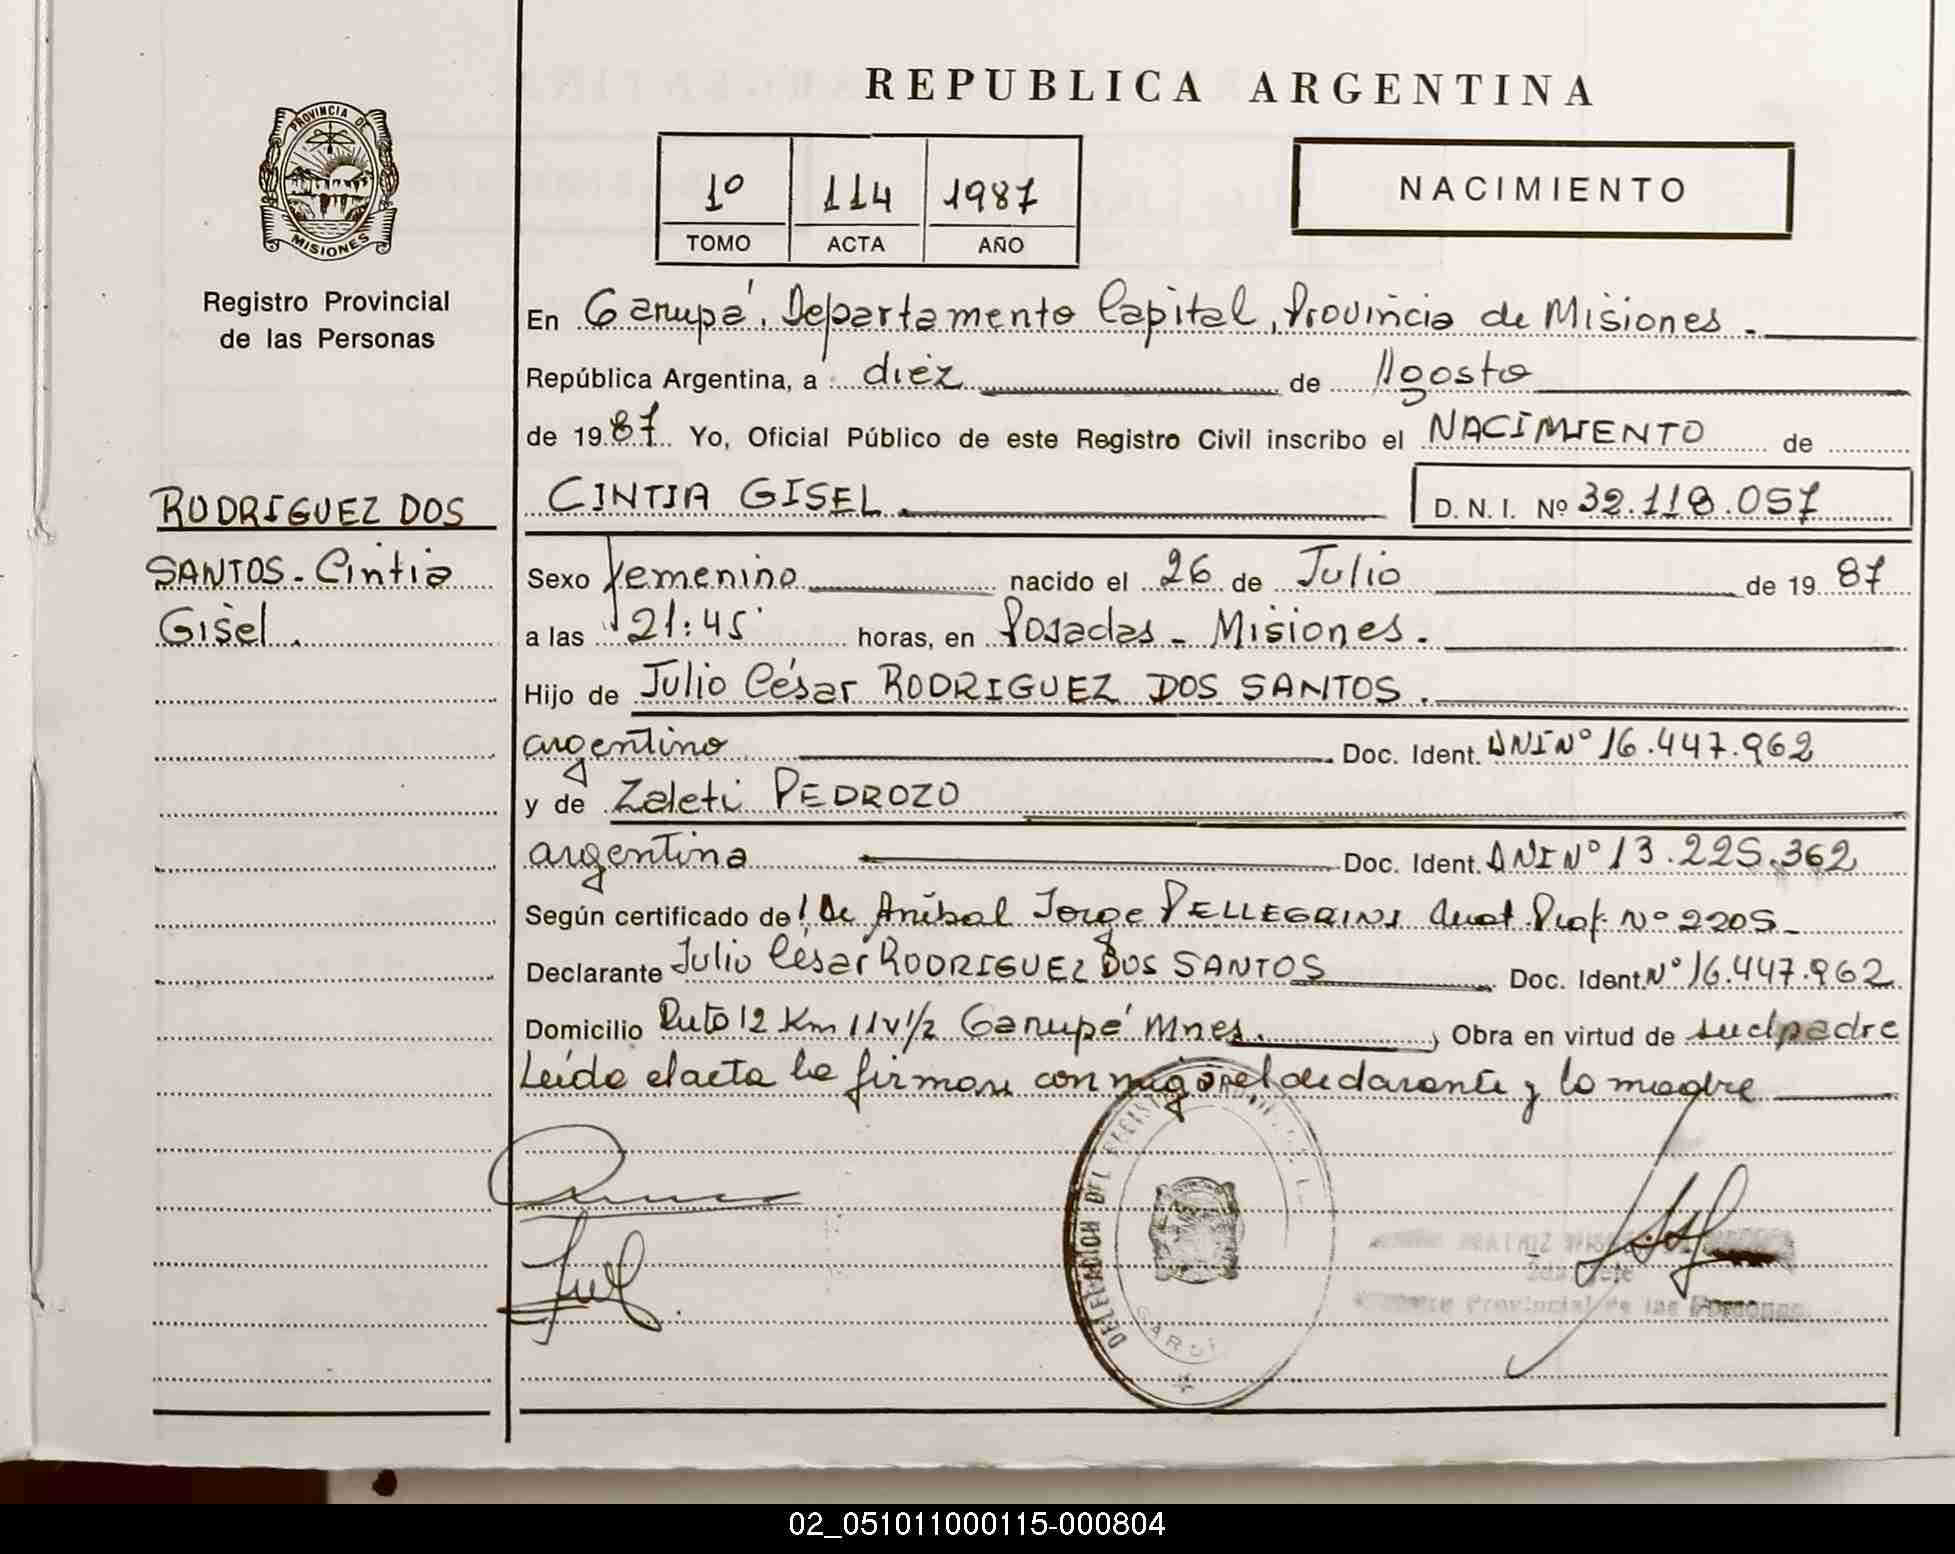 REPUBLICA ARGENTINA
PROVINCIA DE
MISIONES
Registro Provincial
de las Personas
1º 114 1987
TOMO ACTA AÑO
NACIMIENTO
En Garupá, Departamento Capital, Provincia de Misiones.
República Argentina, a diez de Agosto
de 1987 Yo, Oficial Público de este Registro Civil inscribo el NACIMIENTO de
CINTIA GISEL D. N. I. Nº 32.118.057
RODRIGUEZ DOS
SANTOS - Cintia
Gisel.
Sexo femenino nacido el 26 de Julio de 1987
a las 21:45 horas, en Posadas - Misiones.
Hijo de Julio César RODRIGUEZ DOS SANTOS.
argentino Doc. Ident. DNI Nº 16.447.962
y de Zaleti PEDROZO
argentina Doc. Ident. DNI Nº 13.225.362
Según certificado de: Aníbal Jorge PELLEGRINI Prof. Nº 2205
Declarante Julio César RODRIGUEZ DOS SANTOS Doc. Ident. Nº 16.447.962
Domicilio Ruta 12 Km 11 y 1/2 Garupá Mnes. , Obra en virtud de su el padre
Leída el acta la firman conmigo el declarante y la madre
DELEGACION DEL
Provincial de las Personas
02_051011000115-000804